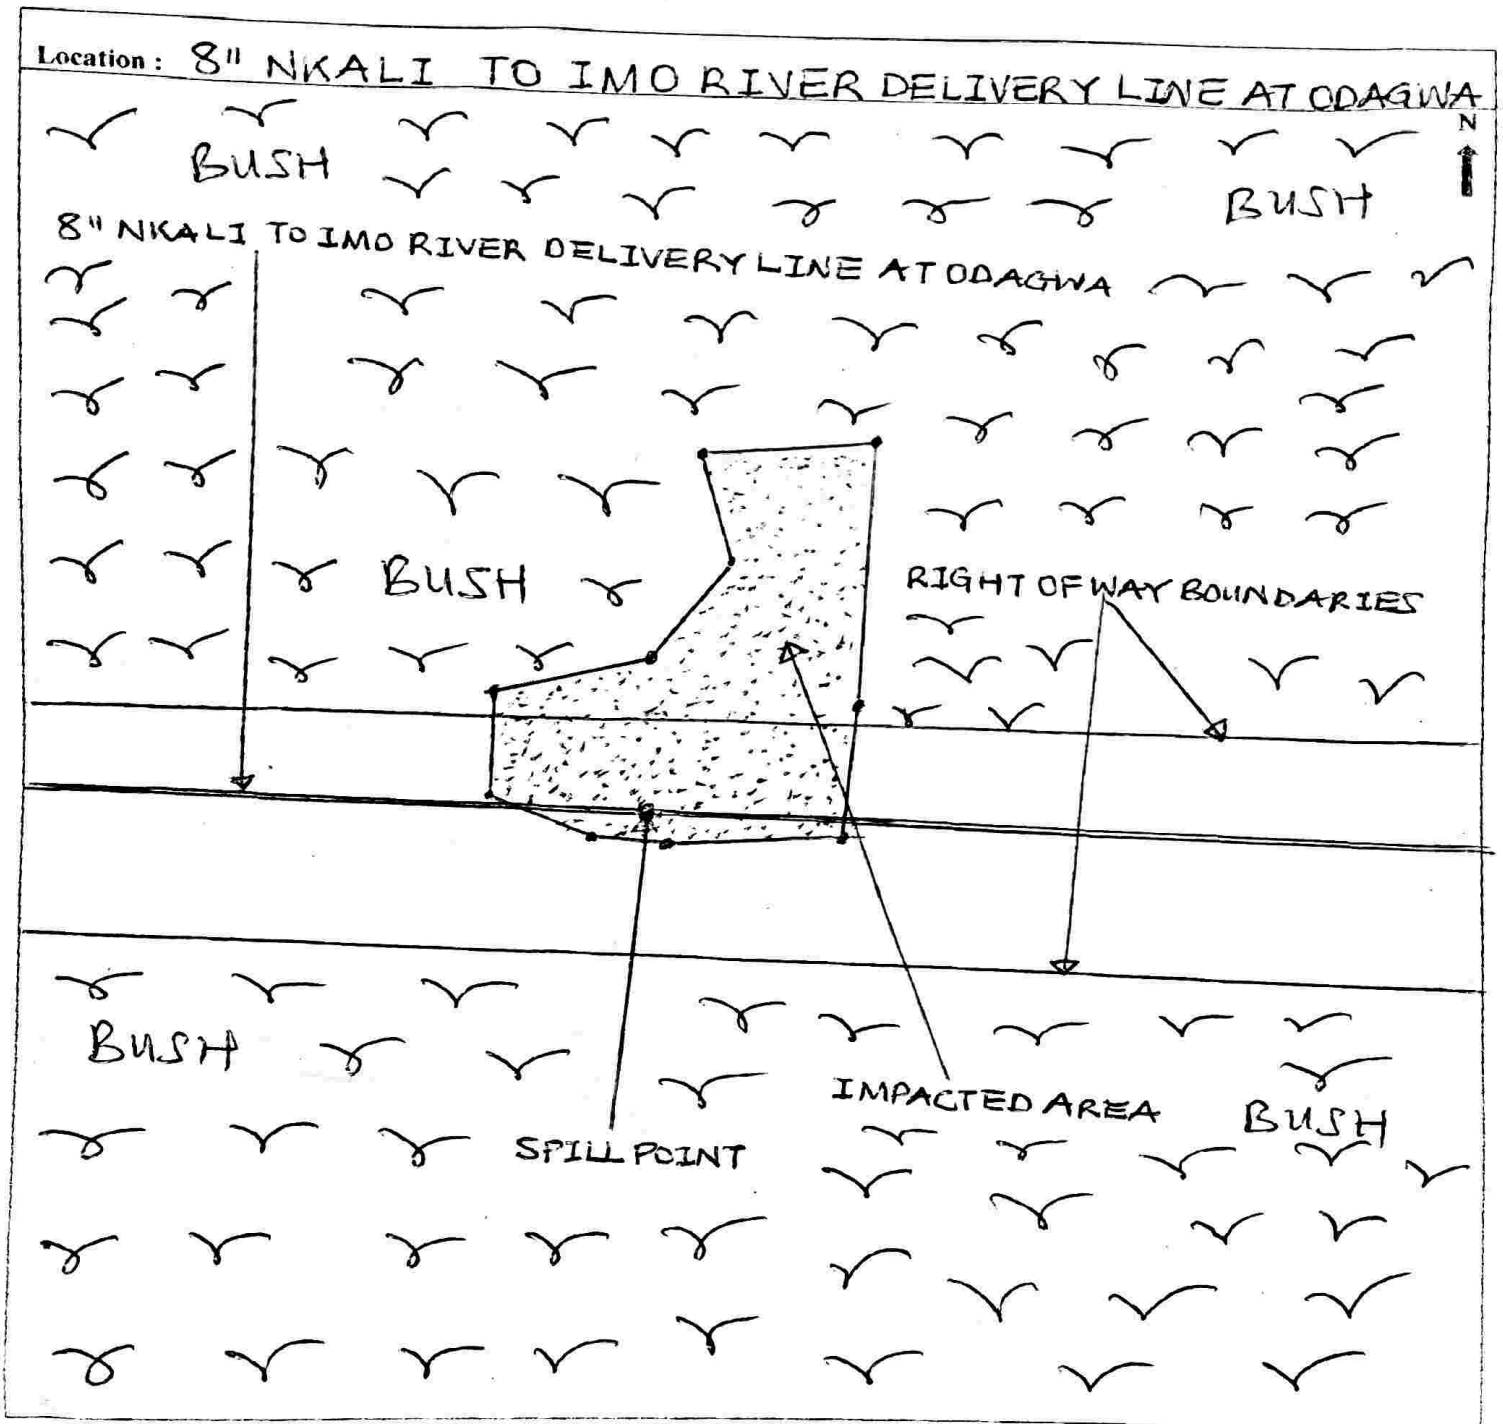 Location : 8" NKALI TO IMO RIVER DELIVERY LINE AT ODAGWA
N
BUSH
BUSH
8" NKALI TO IMO RIVER DELIVERY LINE AT ODAGWA
BUSH
RIGHT OF WAY BOUNDARIES
BUSH
IMPACTED AREA
BUSH
SPILL POINT